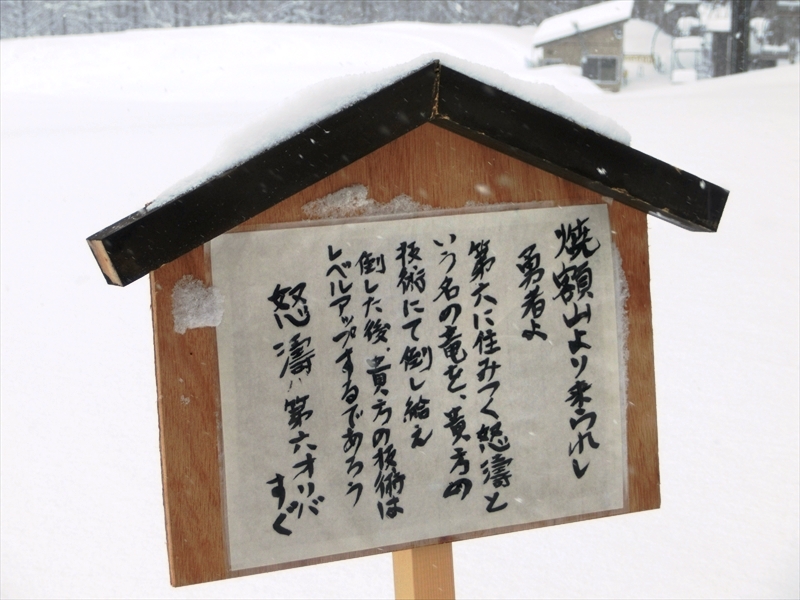 焼額山より来られし
勇者よ
第六に住みつく怒濤と
いう名の竜を、貴方の
技術にて倒し給え
倒した後、貴方の技術は
レベルアップするであろう
怒濤ハ第六オリバ
すぐ